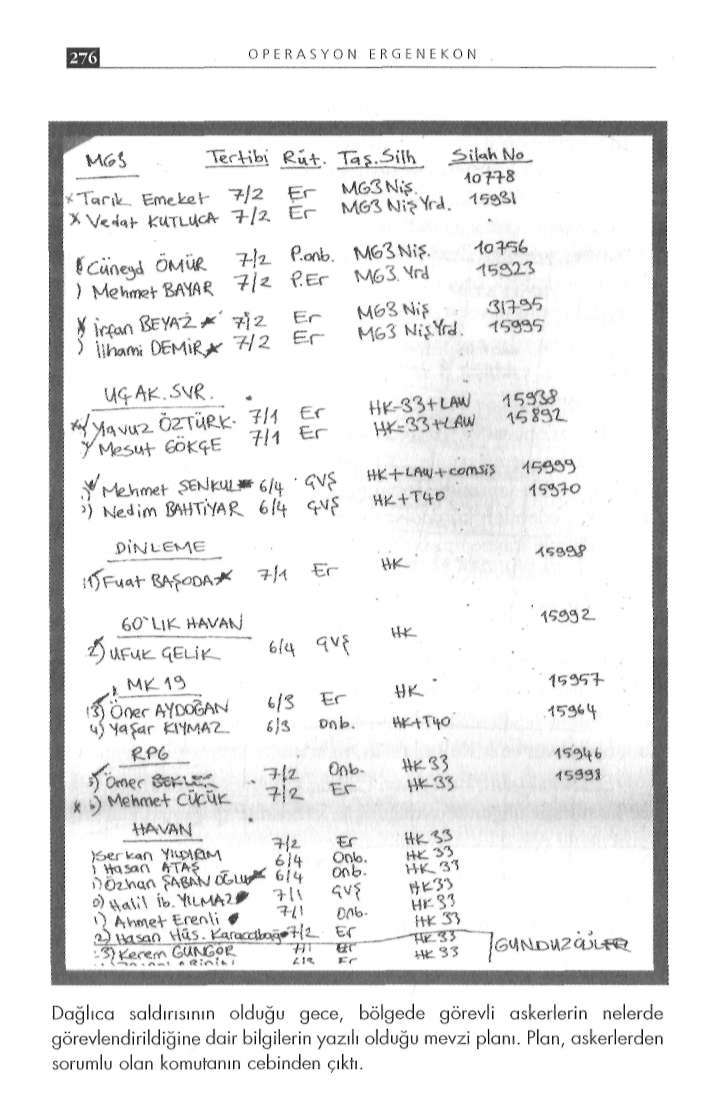 276
OPERASYON ERGENEKON
MG3 Tertibi Rüt. Taş.Silh Silah No
x Tarık Emeket 7/2 Er MG3 Niş. 10778
x Vedat KUTLUCA 7/2 Er MG3 Niş Yrd. 15931
Cüneyd ÖMÜR 7/2 P.onb. MG3 Niş. 10756
) Mehmet BAYAR 7/2 P.Er MG3. Yrd 15923
İrfan BEYAZ 7/2 Er MG3 Niş 31795
) İlhami DEMİR 7/2 Er MG3 Niş Yrd. 15995
UÇAK.SVR.
Yavuz ÖZTÜRK. 7/1 Er HK-33+LAW 15938
Mesut GÖKÇE 7/1 Er HK-33+LAW 15892
Mehmet ŞENKUL 6/4 ÇVŞ HK+LAW+comsis 15999
) Nedim BAHTİYAR 6/4 ÇVŞ HK+T40 15970
DİNLEME
1) Fuat BAŞODA 7/1 Er HK 15998
60'LIK HAVAN
2) UFUK ÇELİK 6/4 ÇVŞ HK 15992
MK 19
3) Öner AYDOĞAN 6/3 Er HK 15957
4) Yaşar KIYMAZ 6/3 Onb. HK+T40 15964
RPG
5) Ömer 7/2 Onb. HK 33 15946
x 6) Mehmet ÇÜÇÜK 7/2 Er HK 33 15993
HAVAN
) Serkan YILDIRIM 7/2 Er HK 33
) Hasan ATAŞ 6/4 Onb. HK 33
) Özhan ŞABANOĞLU 6/4 Onb. HK 33
0) Halil İb. YILMAZ 7/1 ÇVŞ HK 33
1) Ahmet Erenli 7/1 Onb. HK 33
2) Hasan Hüs. Karacabağ 7/2 Er HK 33
3) Kerem GÜNGÖR 7/1 Er HK 33 GÜNDÜZCÜLER
Er HK 33
Dağlıca saldırısının olduğu gece, bölgede görevli askerlerin nelerde
görevlendirildiğine dair bilgilerin yazılı olduğu mevzi planı. Plan, askerlerden
sorumlu olan komutanın cebinden çıktı.